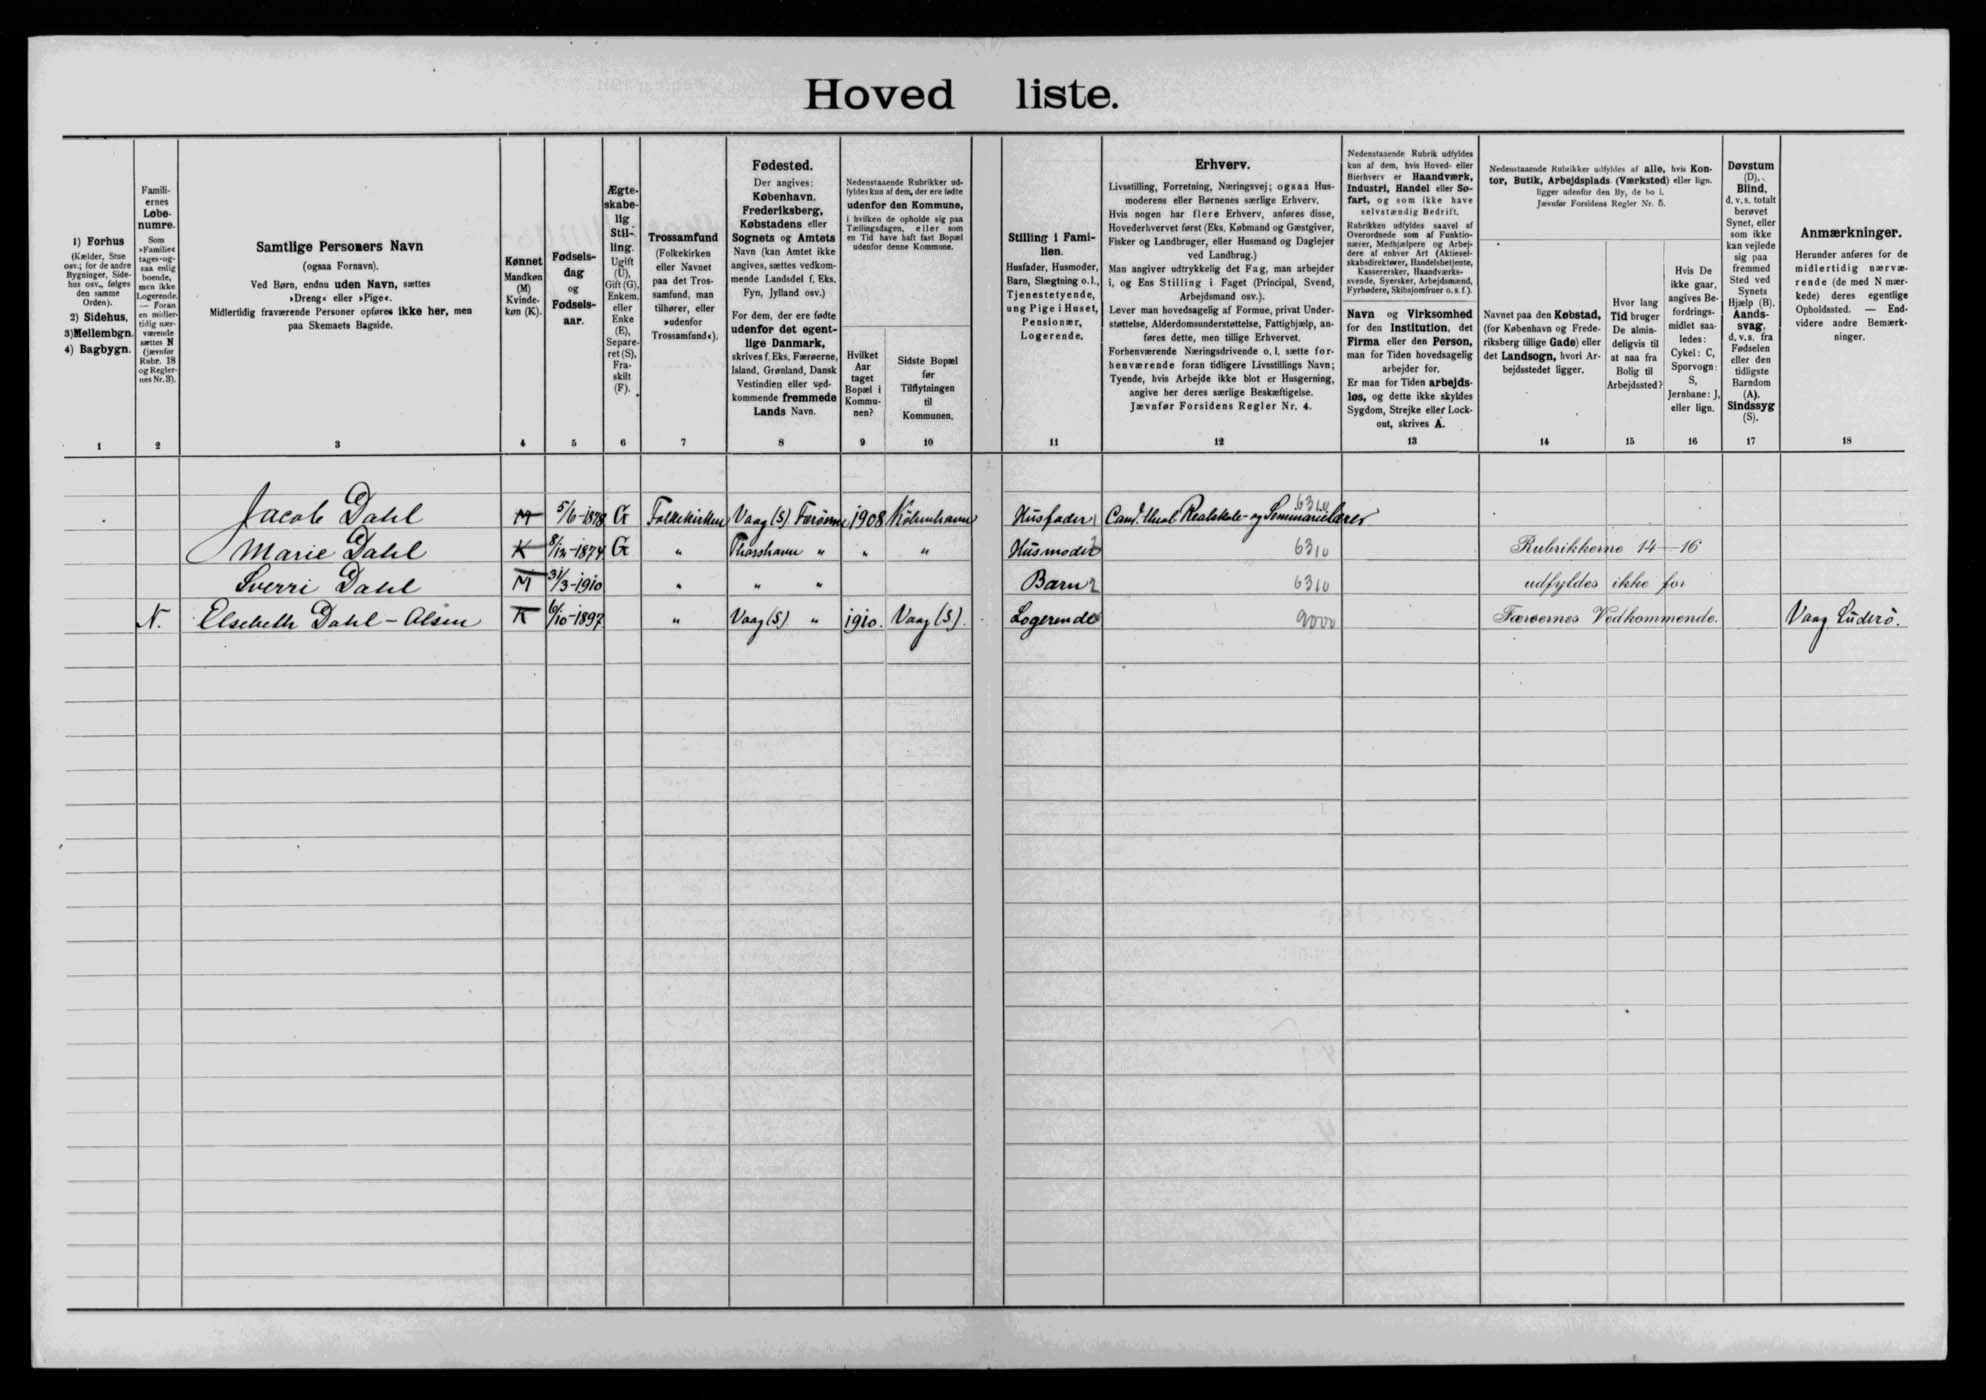 Hoved liste.
1) Forhus
(Kælder, Stue
osv.; for de andre
Bygninger, Side-
hus osv., følges
den samme
Orden).
2) Sidehus,
3) Mellembgn.
4) Bagbygn.
1
Famili-
ernes
Løbe-
numre.
Som
»Familie«
tages og-
saa enlig
boende,
men ikke
Logerende.
— Foran
en midler-
tidig nær-
værende
sættes N
(jævnfør
Rubr. 18
og Regler-
nes Nr. 3).
2
Samtlige Personers Navn
(ogsaa Fornavn).
Ved Børn, endnu uden Navn, sættes
»Dreng« eller »Pige«.
Midlertidig fraværende Personer opføres ikke her, men
paa Skemaets Bagside.
3
Kønnet
Mandkøn
(M)
Kvinde-
køn (K).
4
Fødsels-
dag
og
Fødsels-
aar.
5
Ægte-
skabe-
lig
Stil-
ling.
Ugift
(U),
Gift (G),
Enkem.
eller
Enke
(E),
Separe-
ret (S),
Fra-
skilt
(F).
6
Trossamfund
(Folkekirken
eller Navnet
paa det Tros-
samfund, man
tilhører, eller
»udenfor
Trossamfund«).
7
Fødested.
Der angives:
København,
Frederiksberg,
Købstadens eller
Sognets og Amtets
Navn (kan Amtet ikke
angives, sættes vedkom-
mende Landsdel f. Eks.
Fyn, Jylland osv.)
For dem, der ere fødte
udenfor det egent-
lige Danmark,
skrives f. Eks. Færøerne,
Island, Grønland, Dansk
Vestindien eller ved-
kommende fremmede
Lands Navn.
8
Nedenstaaende Rubrikker ud-
fyldes kun af dem, der ere fødte
udenfor den Kommune,
i hvilken de opholde sig paa
Tællingsdagen, eller som
en Tid have haft fast Bopæl
udenfor denne Kommune.
Hvilket
Aar
taget
Bopæl i
Kommu-
nen?
9
Sidste Bopæl
før
Tilflytningen
til
Kommunen.
10
Stilling i Fami-
lien.
Husfader, Husmoder,
Barn, Slægtning o. l.,
Tjenestetyende,
ung Pige i Huset,
Pensionær,
Logerende.
11
Erhverv.
Livsstilling, Forretning, Næringsvej; ogsaa Hus-
moderens eller Børnenes særlige Erhverv.
Hvis nogen har flere Erhverv, anføres disse,
Hovederhvervet først (Eks. Købmand og Gæstgiver,
Fisker og Landbruger, eller Husmand og Daglejer
ved Landbrug.)
Man angiver udtrykkelig det Fag, man arbejder
i, og Ens Stilling i Faget (Principal, Svend,
Arbejdsmand osv.).
Lever man hovedsagelig af Formue, privat Under-
støttelse, Alderdomsunderstøttelse, Fattighjælp, an-
føres dette, men tillige Erhvervet.
Forhenværende Næringsdrivende o. l. sætte for-
henværende foran tidligere Livsstillings Navn;
Tyende, hvis Arbejde ikke blot er Husgerning,
angive her deres særlige Beskæftigelse.
Jævnfør Forsidens Regler Nr. 4.
12
Nedenstaaende Rubrik udfyldes
kun af dem, hvis Hoved- eller
Bierhverv er Haandværk,
Industri, Handel eller Sø-
fart, og som ikke have
selvstændig Bedrift.
Rubrikken udfyldes saavel af
Overordnede som af Funktio-
nærer, Medhjælpere og Arbej-
dere af enhver Art (Aktiesel-
skabsdirektører, Handelsbetjente,
Kasserersker, Haandværks-
svende, Syersker, Arbejdsmænd,
Fyrbødere, Skibsjomfruer o. s. f.).
Navn og Virksomhed
for den Institution, det
Firma eller den Person,
man for Tiden hovedsagelig
arbejder for.
Er man for Tiden arbejds-
løs, og dette ikke skyldes
Sygdom, Strejke eller Lock-
out, skrives A.
13
Nedenstaaende Rubrikker udfyldes af alle, hvis Kon-
tor, Butik, Arbejdsplads (Værksted) eller lign.
ligger udenfor den By, de bo i.
Jævnfør Forsidens Regler Nr. 5.
Navnet paa den Købstad,
(for København og Frede-
riksberg tillige Gade) eller
det Landsogn, hvori Ar-
bejdsstedet ligger.
14
Hvor lang
Tid bruger
De almin-
deligvis til
at naa fra
Bolig til
Arbejdssted?
15
Hvis De
ikke gaar,
angives Be-
fordrings-
midlet saa-
ledes:
Cykel: C,
Sporvogn:
S,
Jernbane: J,
eller lign.
16
Døvstum
(D).
Blind,
d. v. s. totalt
berøvet
Synet, eller
som ikke
kan vejlede
sig paa
fremmed
Sted ved
Synets
Hjælp (B).
Aands-
svag,
d. v. s. fra
Fødselen
eller den
tidligste
Barndom
(A).
Sindssyg
(S).
17
Anmærkninger.
Herunder anføres for de
midlertidig nærvæ-
rende (de med N mær-
kede) deres egentlige
Opholdssted. — End-
videre andre Bemærk-
ninger.
18
Jacob Dahl M 5/6-1878 G Folkekirken Vaag (S) Færöerne 1908 København Husfader 1 Cand. theol Realskole- og Seminarielærer 6310
Marie Dahl K 8/12-1874 G " Thorshavn " " " Husmoder 2 6310 Rubrikkerne 14—16
Sverri Dahl M 31/3-1910 " " " Barn 2 6310 udfyldes ikke for
N. Elsebeth Dahl-Olsen K 6/10-1897 " Vaag (S) " 1910. Vaag (S). Logerende 9000 Færøernes Vedkommende. Vaag Süderö.